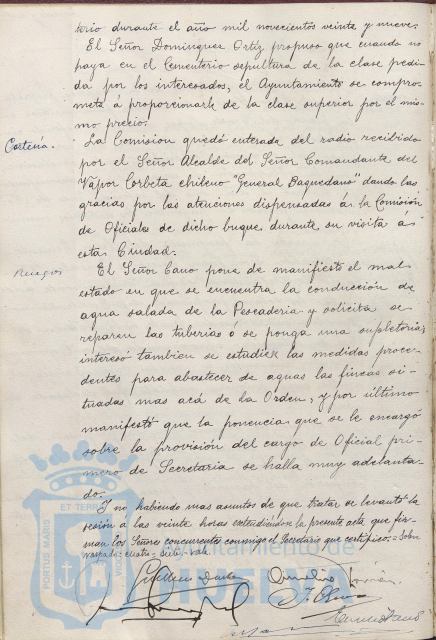 terio durante el año mil novecientos veinte y nueve.
El Señor Dominguez Ortiz propuso que cuando no
haya en el Cementerio sepultura de la clase pedi-
da por los interesados, el Ayuntamiento se compro-
meta á proporcionarle de la clase superior por el mis-
mo precio.
Cortesía.
La Comision quedó enterada del radio recibido
por el Señor Alcalde del Señor Comandante del
Vapor Corbeta chileno "General Baquedano" dando las
gracias por las atenciones dispensadas á la Comisión
de Oficiales de dicho buque, durante su visita á
esta Ciudad.
Ruegos
El Señor Cano pone de manifiesto el mal
estado en que se encuentra la conducción de
agua salada de la Pescaderia y solicita se
reparen las tuberias ó se ponga una supletoria;
interesó tambien se estudien las medidas proce-
dentes para abastecer de aguas las fincas si-
tuadas mas acá de la Orden, y por último
manifestó que la ponencia que se le encargó
sobre la provisión del cargo de Oficial pri-
mero de Secretaria se halla muy adelanta-
da.
Y no habiendo mas asuntos de que tratar se levantó la
sesión á las veinte horas extendiéndose la presente acta que fir-
man los Señores concurrentes conmigo el Secretario que certifico.= Sobre
raspado: vale.
PORTUS MARIS ET TERRAE
Ayuntamiento de
HUELVA